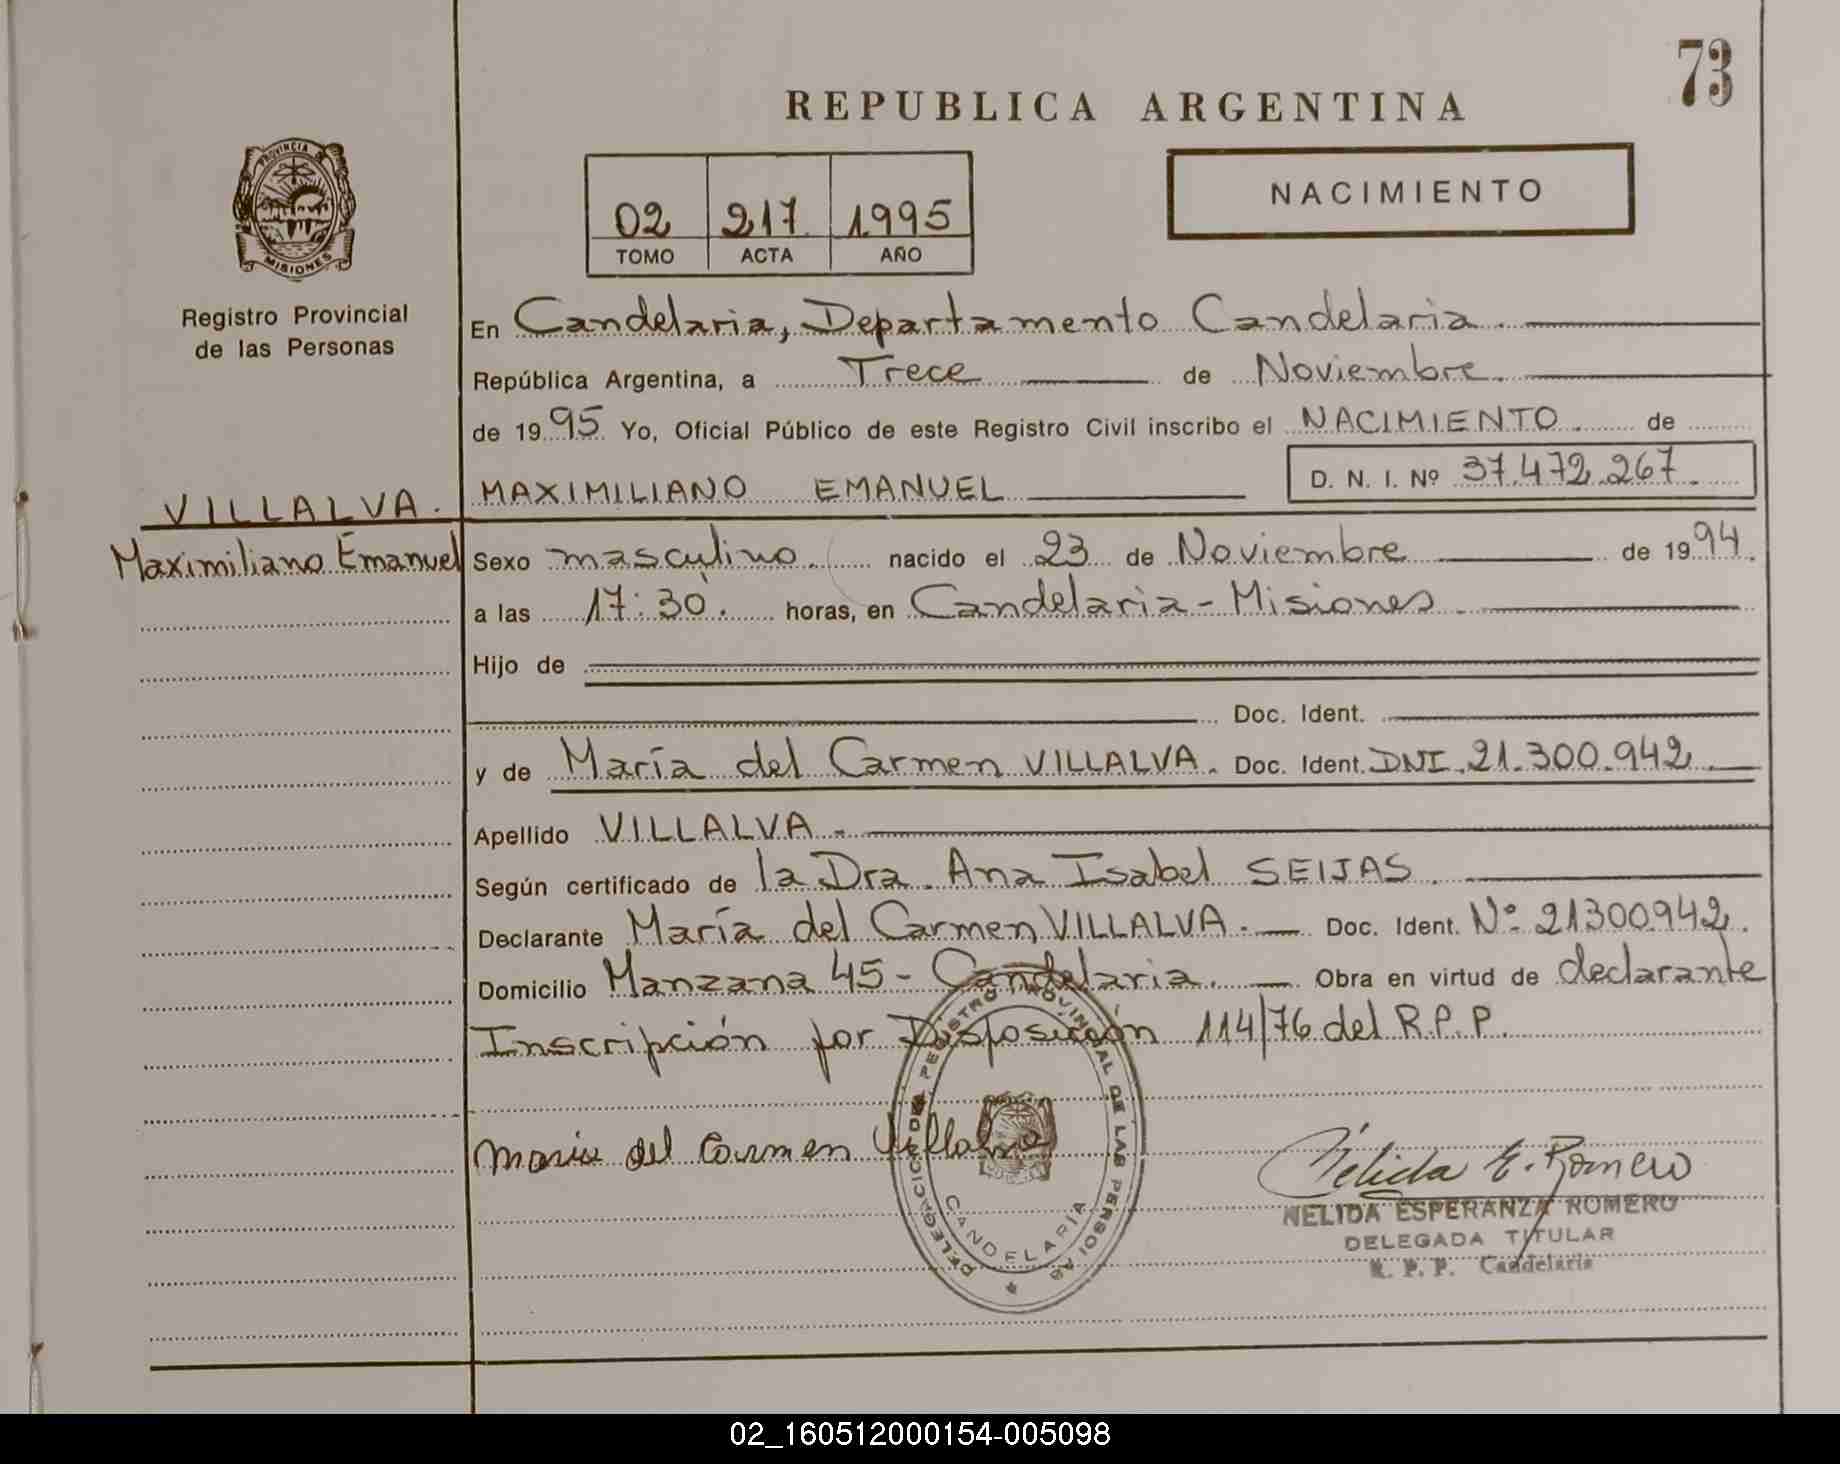 73
REPUBLICA ARGENTINA
PROVINCIA DE
MISIONES
Registro Provincial
de las Personas
02 217 1995
TOMO ACTA AÑO
NACIMIENTO
En Candelaria, Departamento Candelaria.
República Argentina, a Trece de Noviembre.
de 1995 Yo, Oficial Público de este Registro Civil inscribo el NACIMIENTO. de
MAXIMILIANO EMANUEL D. N. I. Nº 37.472.267.
VILLALVA.
Maximiliano Emanuel
Sexo masculino. nacido el 23 de Noviembre de 1994.
a las 17:30. horas, en Candelaria - Misiones.
Hijo de
Doc. Ident.
y de María del Carmen VILLALVA. Doc. Ident. DNI. 21.300.942.
Apellido VILLALVA.
Según certificado de la Dra. Ana Isabel SEIJAS.
Declarante María del Carmen VILLALVA. Doc. Ident. Nº 21300942.
Domicilio Manzana 45 - Candelaria. Obra en virtud de declarante
Inscripción por Disposición 114/76 del R.P.P.
Maria del Carmen Villalva
DELEGACION DEL REGISTRO PROVINCIAL DE LAS PERSONAS
CANDELARIA
Nélida E. Romero
NELIDA ESPERANZA ROMERO
DELEGADA TITULAR
R. P. P. Candelaria
02_160512000154-005098